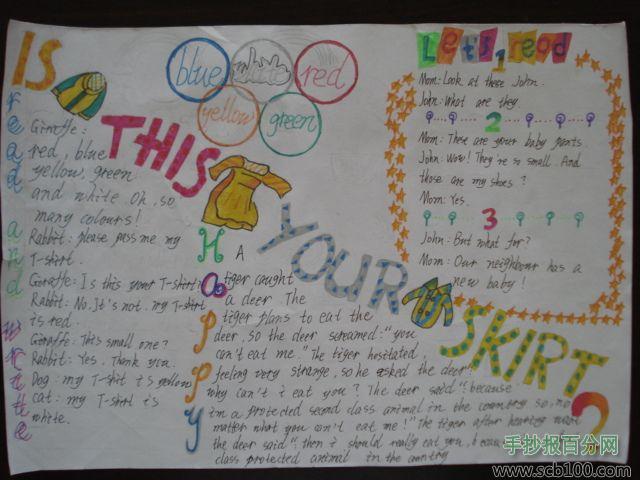 IS
THIS
YOUR
SKIRT
?
blue
white
red
yellow
green
read and write
Giraffe:
red, blue
yellow, green
and white. Oh, so
many colours!
Rabbit: please pass me my
T-shirt.
Giraffe: Is this your T-shirt?
Rabbit: No. It's not. my T-shirt
is red.
Giraffe: This small one?
Rabbit: Yes. Thank you.
Dog: my T-shit is yellow
cat: my T-shirt is
white.
Happy
A
tiger caught
a deer. The
tiger plans to eat the
deer, so the deer screamed: "you
can't eat me." The tiger hesitated
feeling very strange, so he asked the deer:
why can't i eat you? The deer said: because
i'm a protected second class animal in the country so, no
matter what you won't eat me!" The tiger after hearing what
the deer said "then i should really eat you,
class protected animal in the country
Let's read
1
Mom: Look at these John.
John: What are they.
2
Mom: These are your baby pants.
John: Wow! They're so small. And
those are my shoes?
Mom: Yes.
3
John: But what for?
Mom: Our neighbour has a
new baby!
手抄报百分网
www.scb100.com